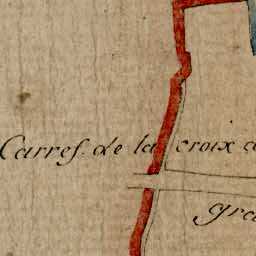 Carref. de la croix
gra